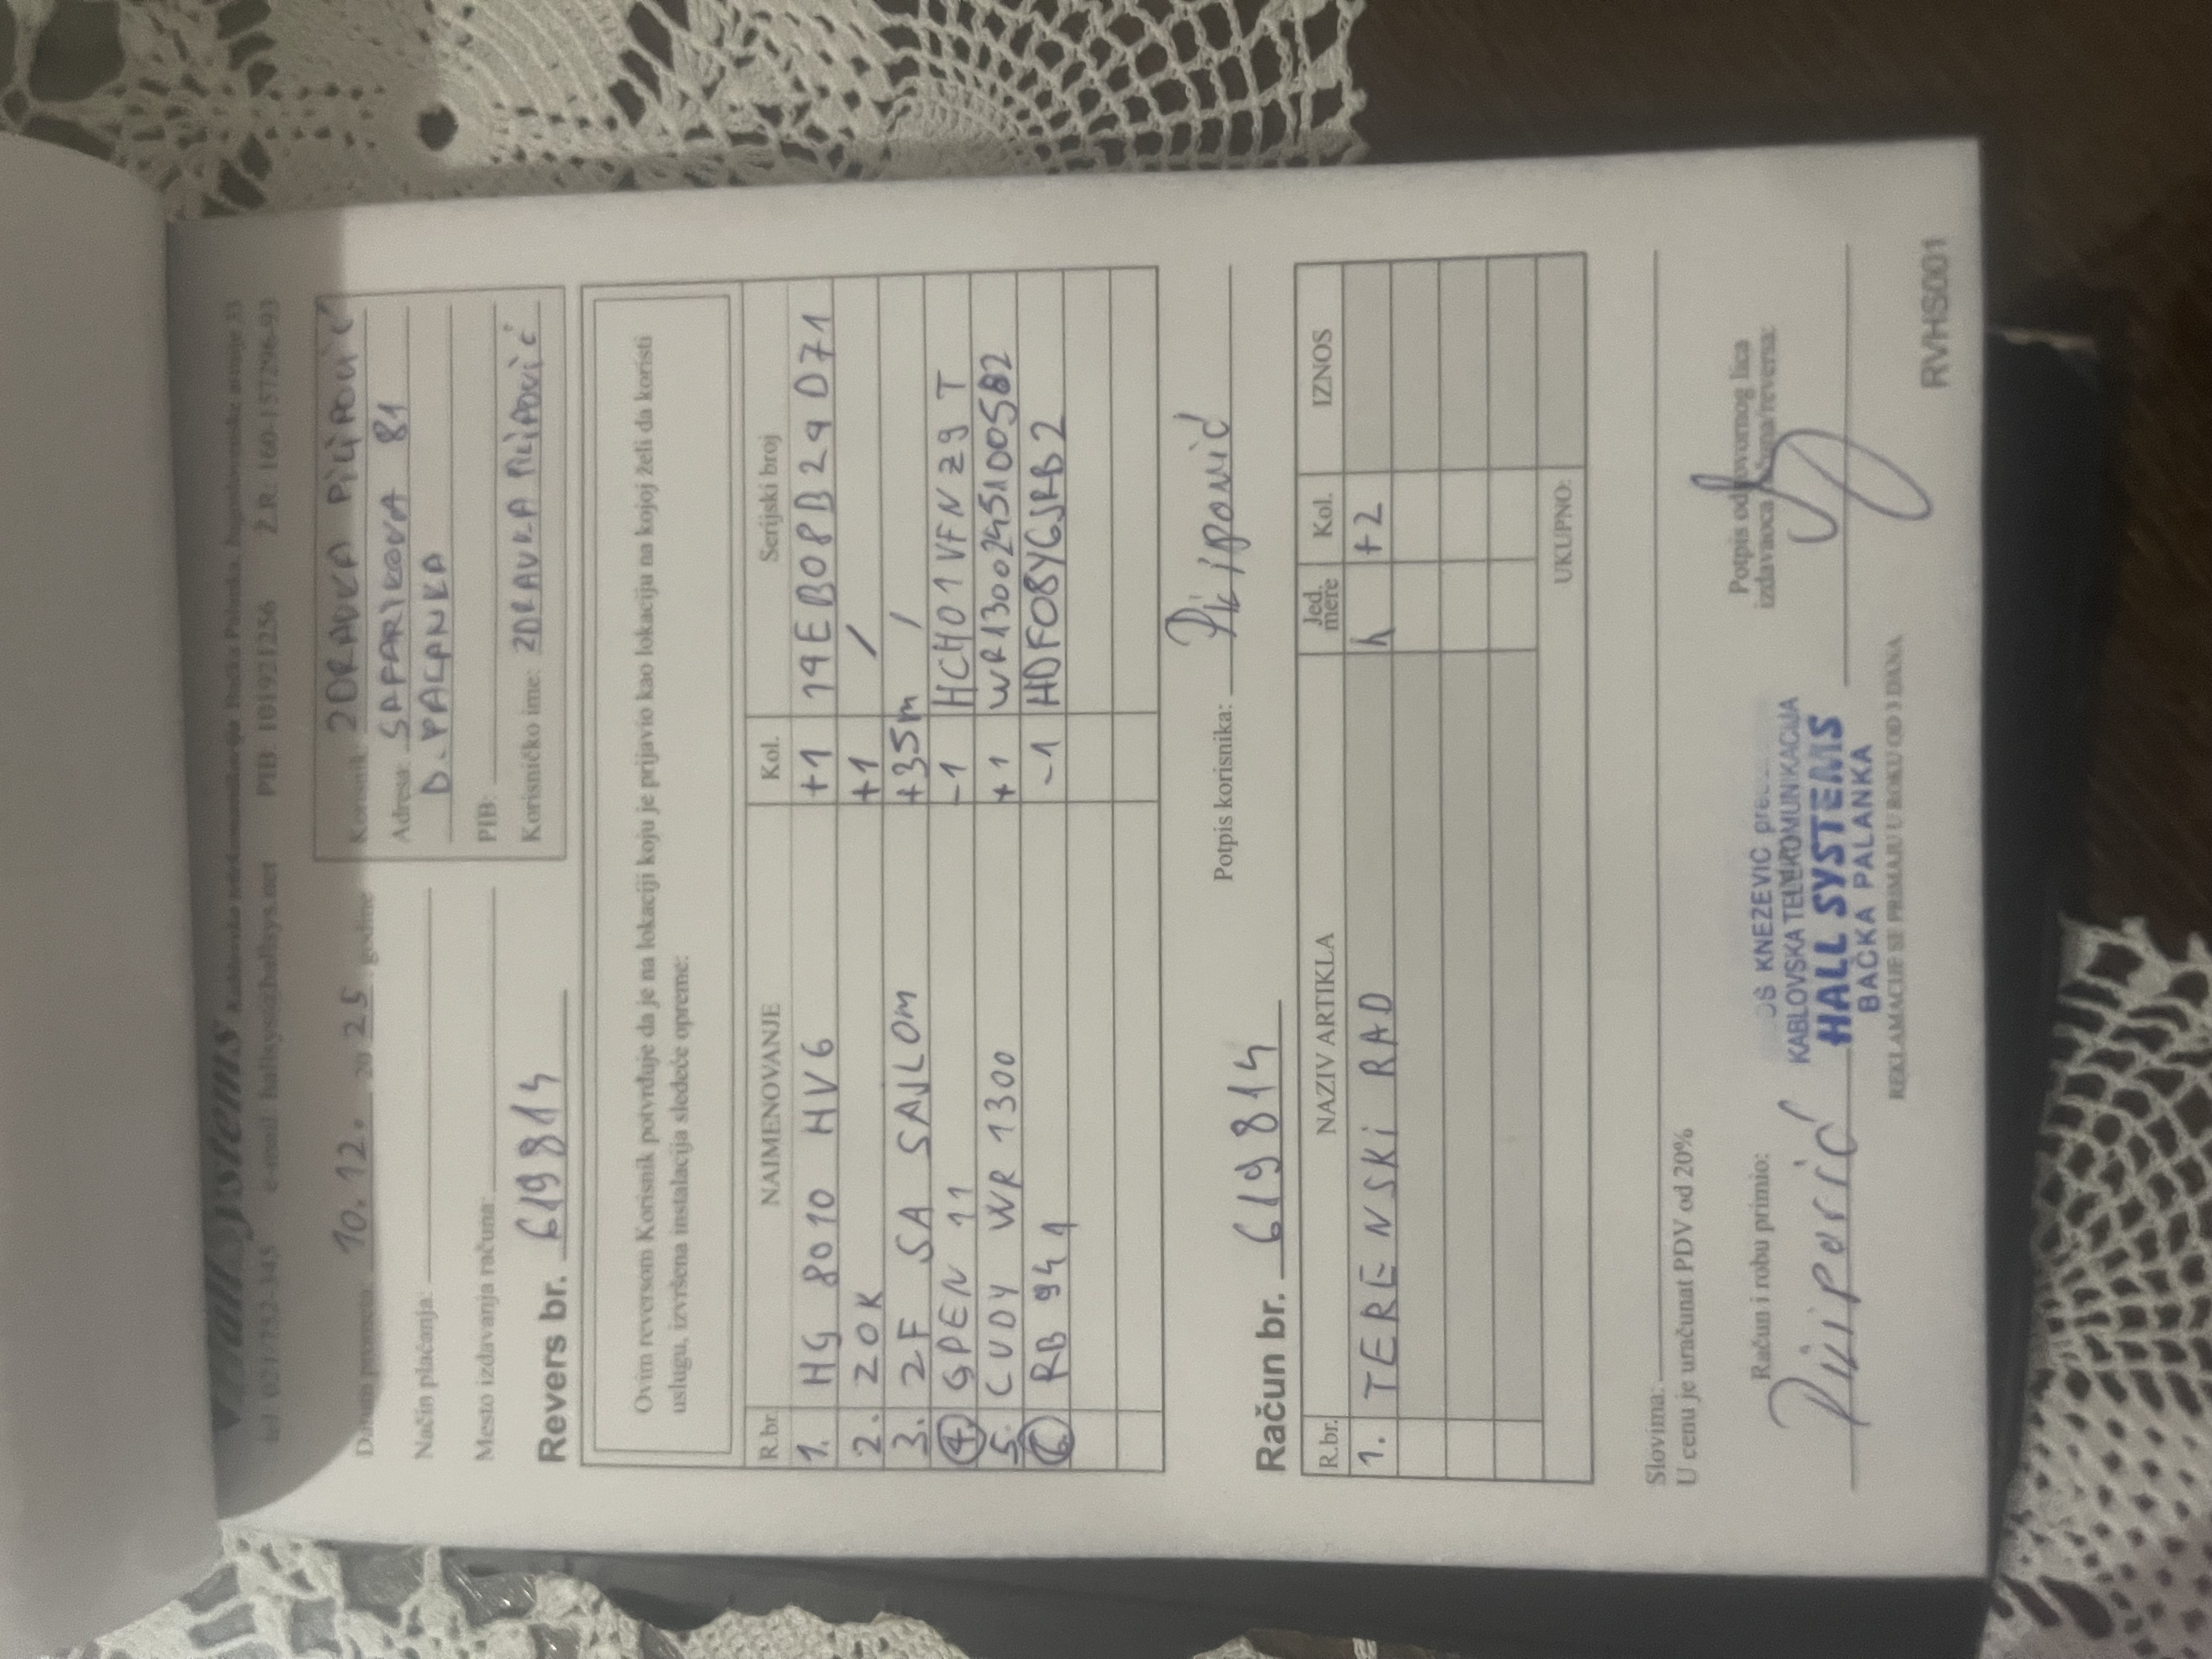 Hall Systems Kablovske telekomunikacije Bačka Palanka, Jugoslovenske armije 33
tel 021/752-345 e-mail hallsys@hallsys.net PIB 101921256 Ž.R. 160-157296-93
Datum prometa 10.12. 2025 godine
Način plaćanja:
Mesto izdavanja računa:
Korisnik ZDRAVKA PILIPOVIĆ
Adresa: ŠAFARIKOVA 81
B. PALANKA
PIB:
Korisničko ime: ZDRAVKA PILIPOVIĆ
Revers br. 619814
Ovim reversom Korisnik potvrđuje da je na lokaciji koju je prijavio kao lokaciju na kojoj želi da koristi
uslugu, izvršena instalacija sledeće opreme:
R.br. NAIMENOVANJE Kol. Serijski broj
1. HG 8010 HV6 +1 19EB08B29D71
2. ZOK +1 /
3. 2F SA SAJLOM +35m /
4. GPEN 11 -1 HCH01VFNZ9T
5. CUDY WR 1300 +1 WR1300245100582
6. RB 941 -1 HDF08YGJRB2
Potpis korisnika: Pilipović
Račun br. 619814
R.br. NAZIV ARTIKLA Jed. mere Kol. IZNOS
1. TERENSKI RAD h +2
UKUPNO:
Slovima:
U cenu je uračunat PDV od 20%
Račun i robu primio:
Pilipović
OŠ KNEZEVIC
KABLOVSKA TELEKOMUNIKACIJA
HALL SYSTEMS
BAČKA PALANKA
REKLAMACIJE SE PRIMAJU U ROKU OD 3 DANA
Potpis odgovornog lica
izdavaoca računa/reversa:
RVHS001